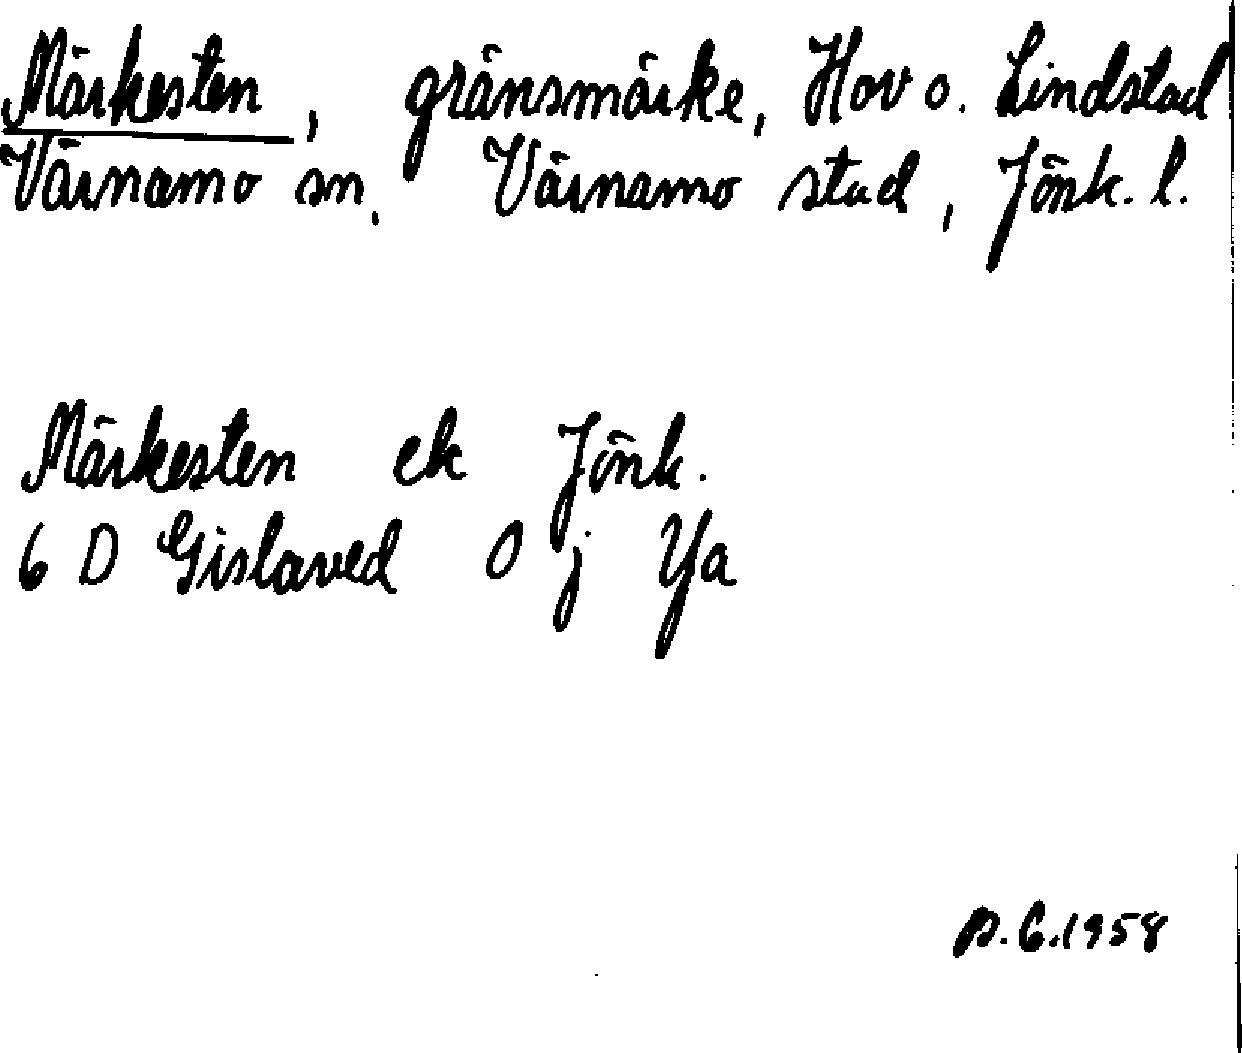 Märkesten, gränsmärke, Hov o. Lindstad
Värnamo sn, Värnamo stad, Jönk. l.
Märkesten ek Jönk.
6 D Gislaved 0 j Ya
p. 6.1958